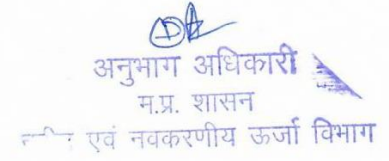 अनुभाग अधिकारी
म.प्र. शासन
एवं नवकरणीय ऊर्जा विभाग